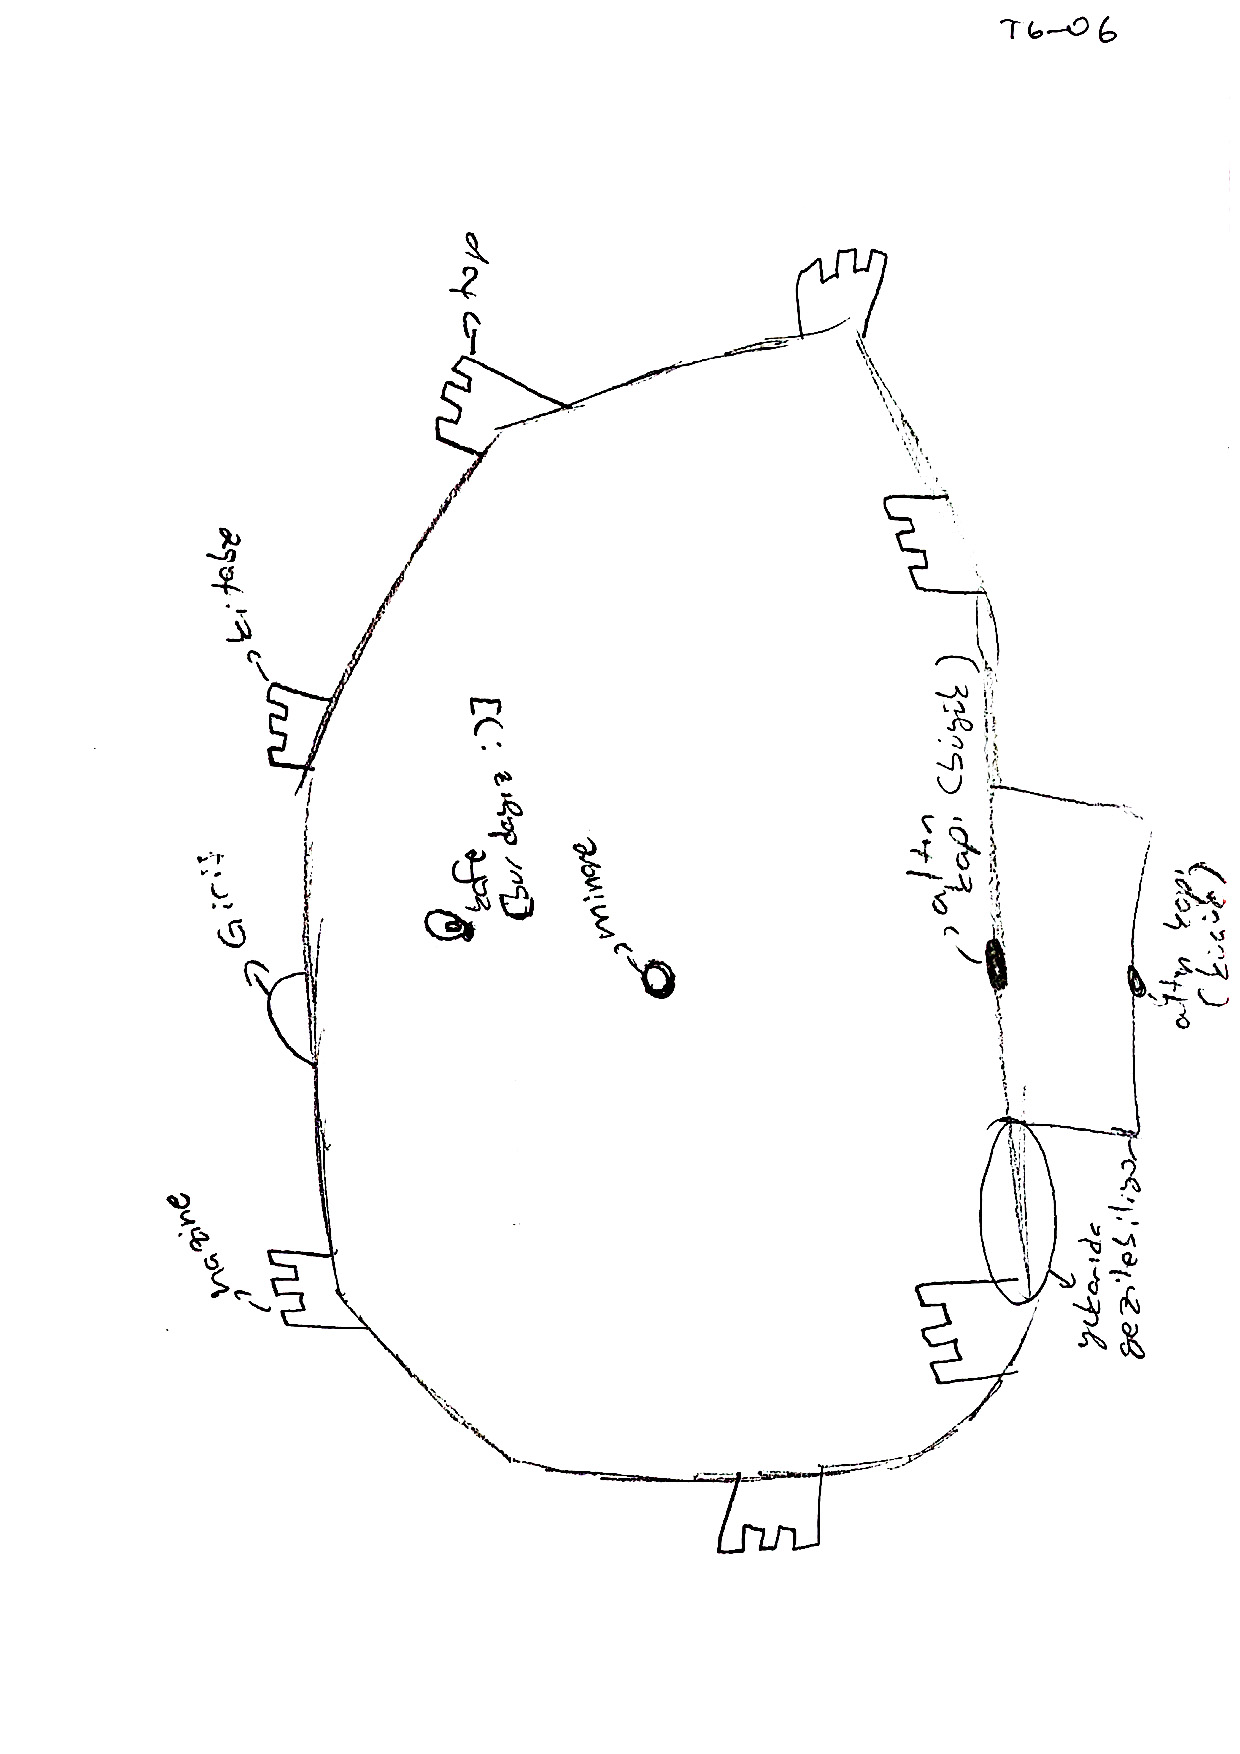 hazine
Giriş
kitabe
top
kafe
[burdayız :)]
minare
altın
kapı (büyük)
yukarıda
gezilebiliyor
altın kapı
(küçük)
T6-06